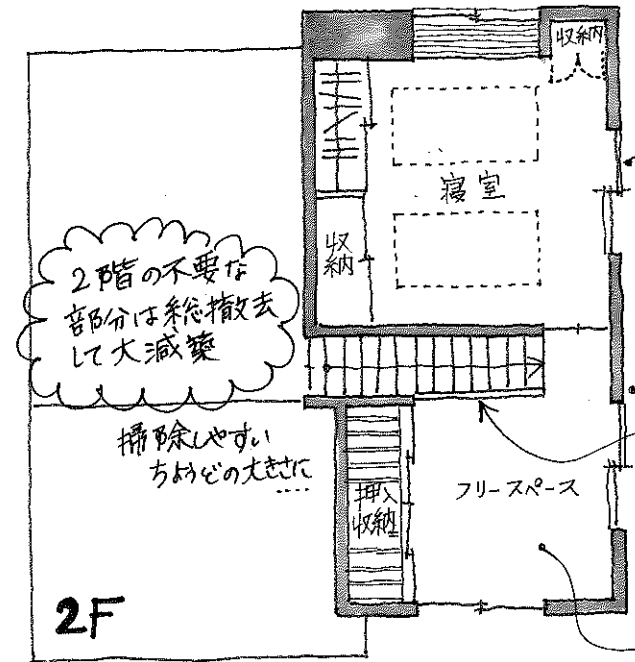 収納
寝室
収
納
2階の不要な
部分は総撤去
して大減築
掃除しやすい
ちょうどの大きさに
....
押入
収納
フリースペース
2F